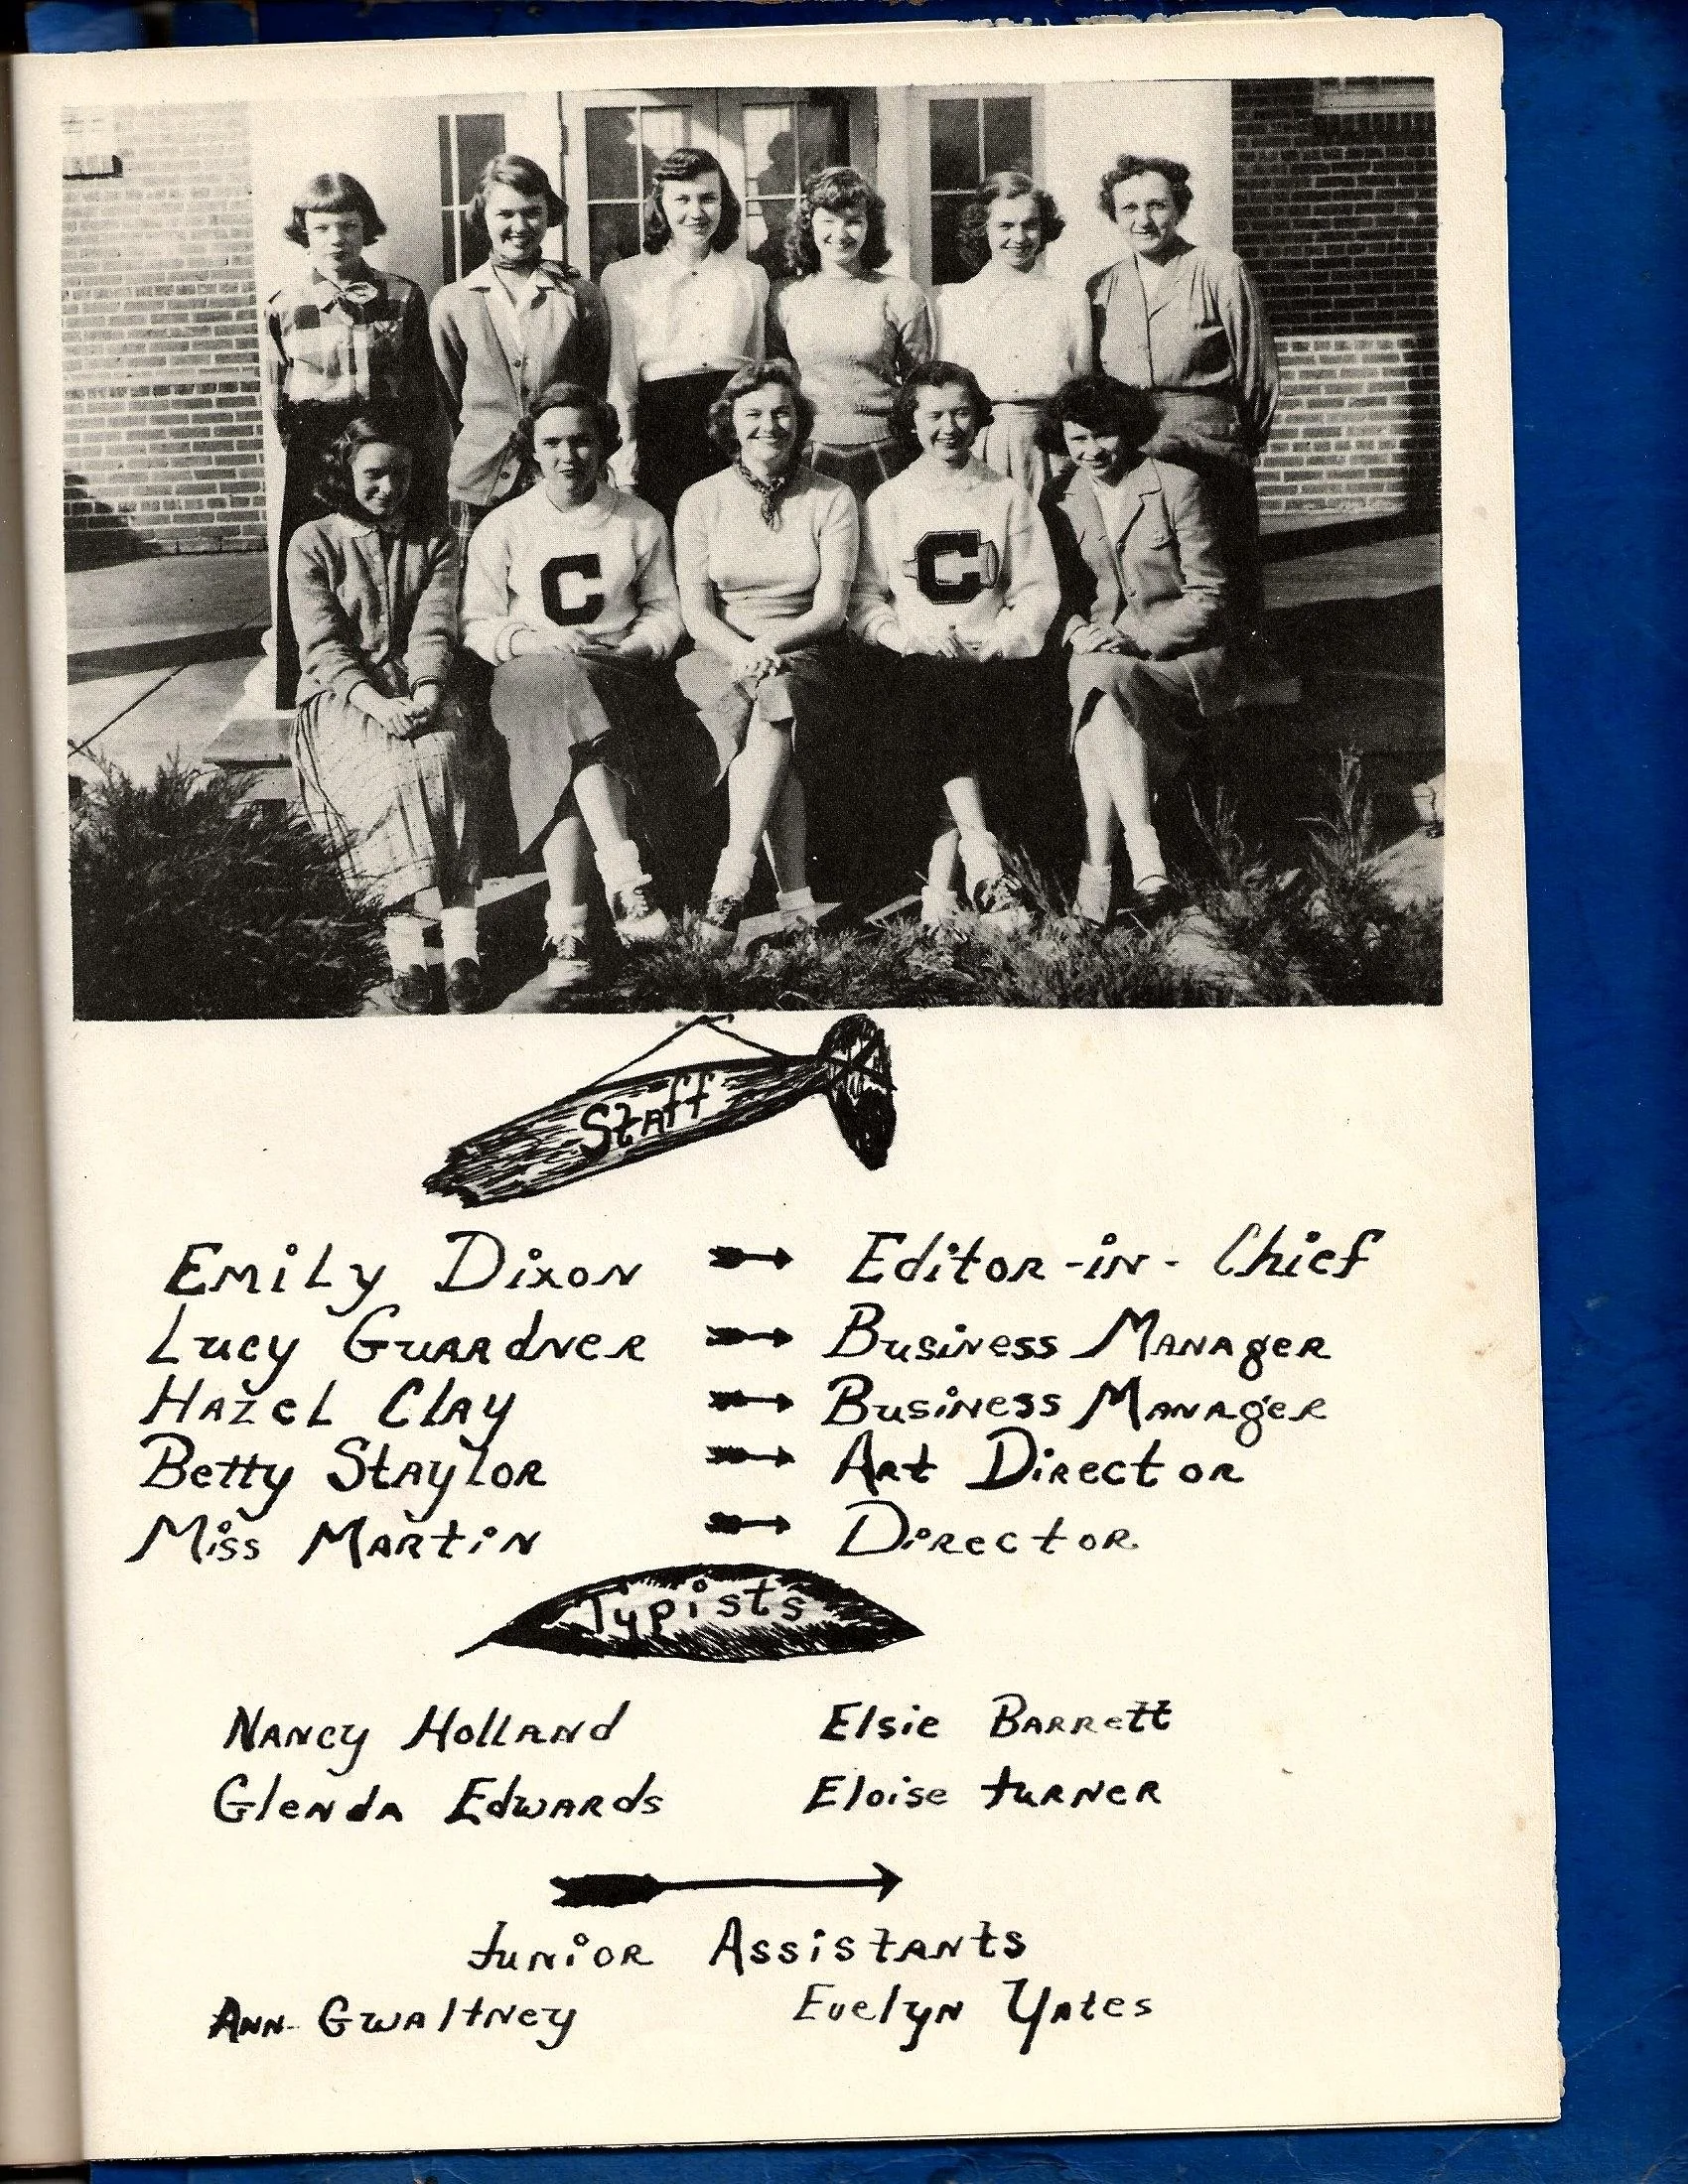 C C
Staff
Emily Dixon Editor-in-Chief
Lucy Guardner Business Manager
Hazel Clay Business Manager
Betty Staylor Art Director
Miss Martin Director
Typists
Nancy Holland Elsie Barrett
Glenda Edwards Eloise turner
Junior Assistants
Ann Gwaltney Evelyn Yates